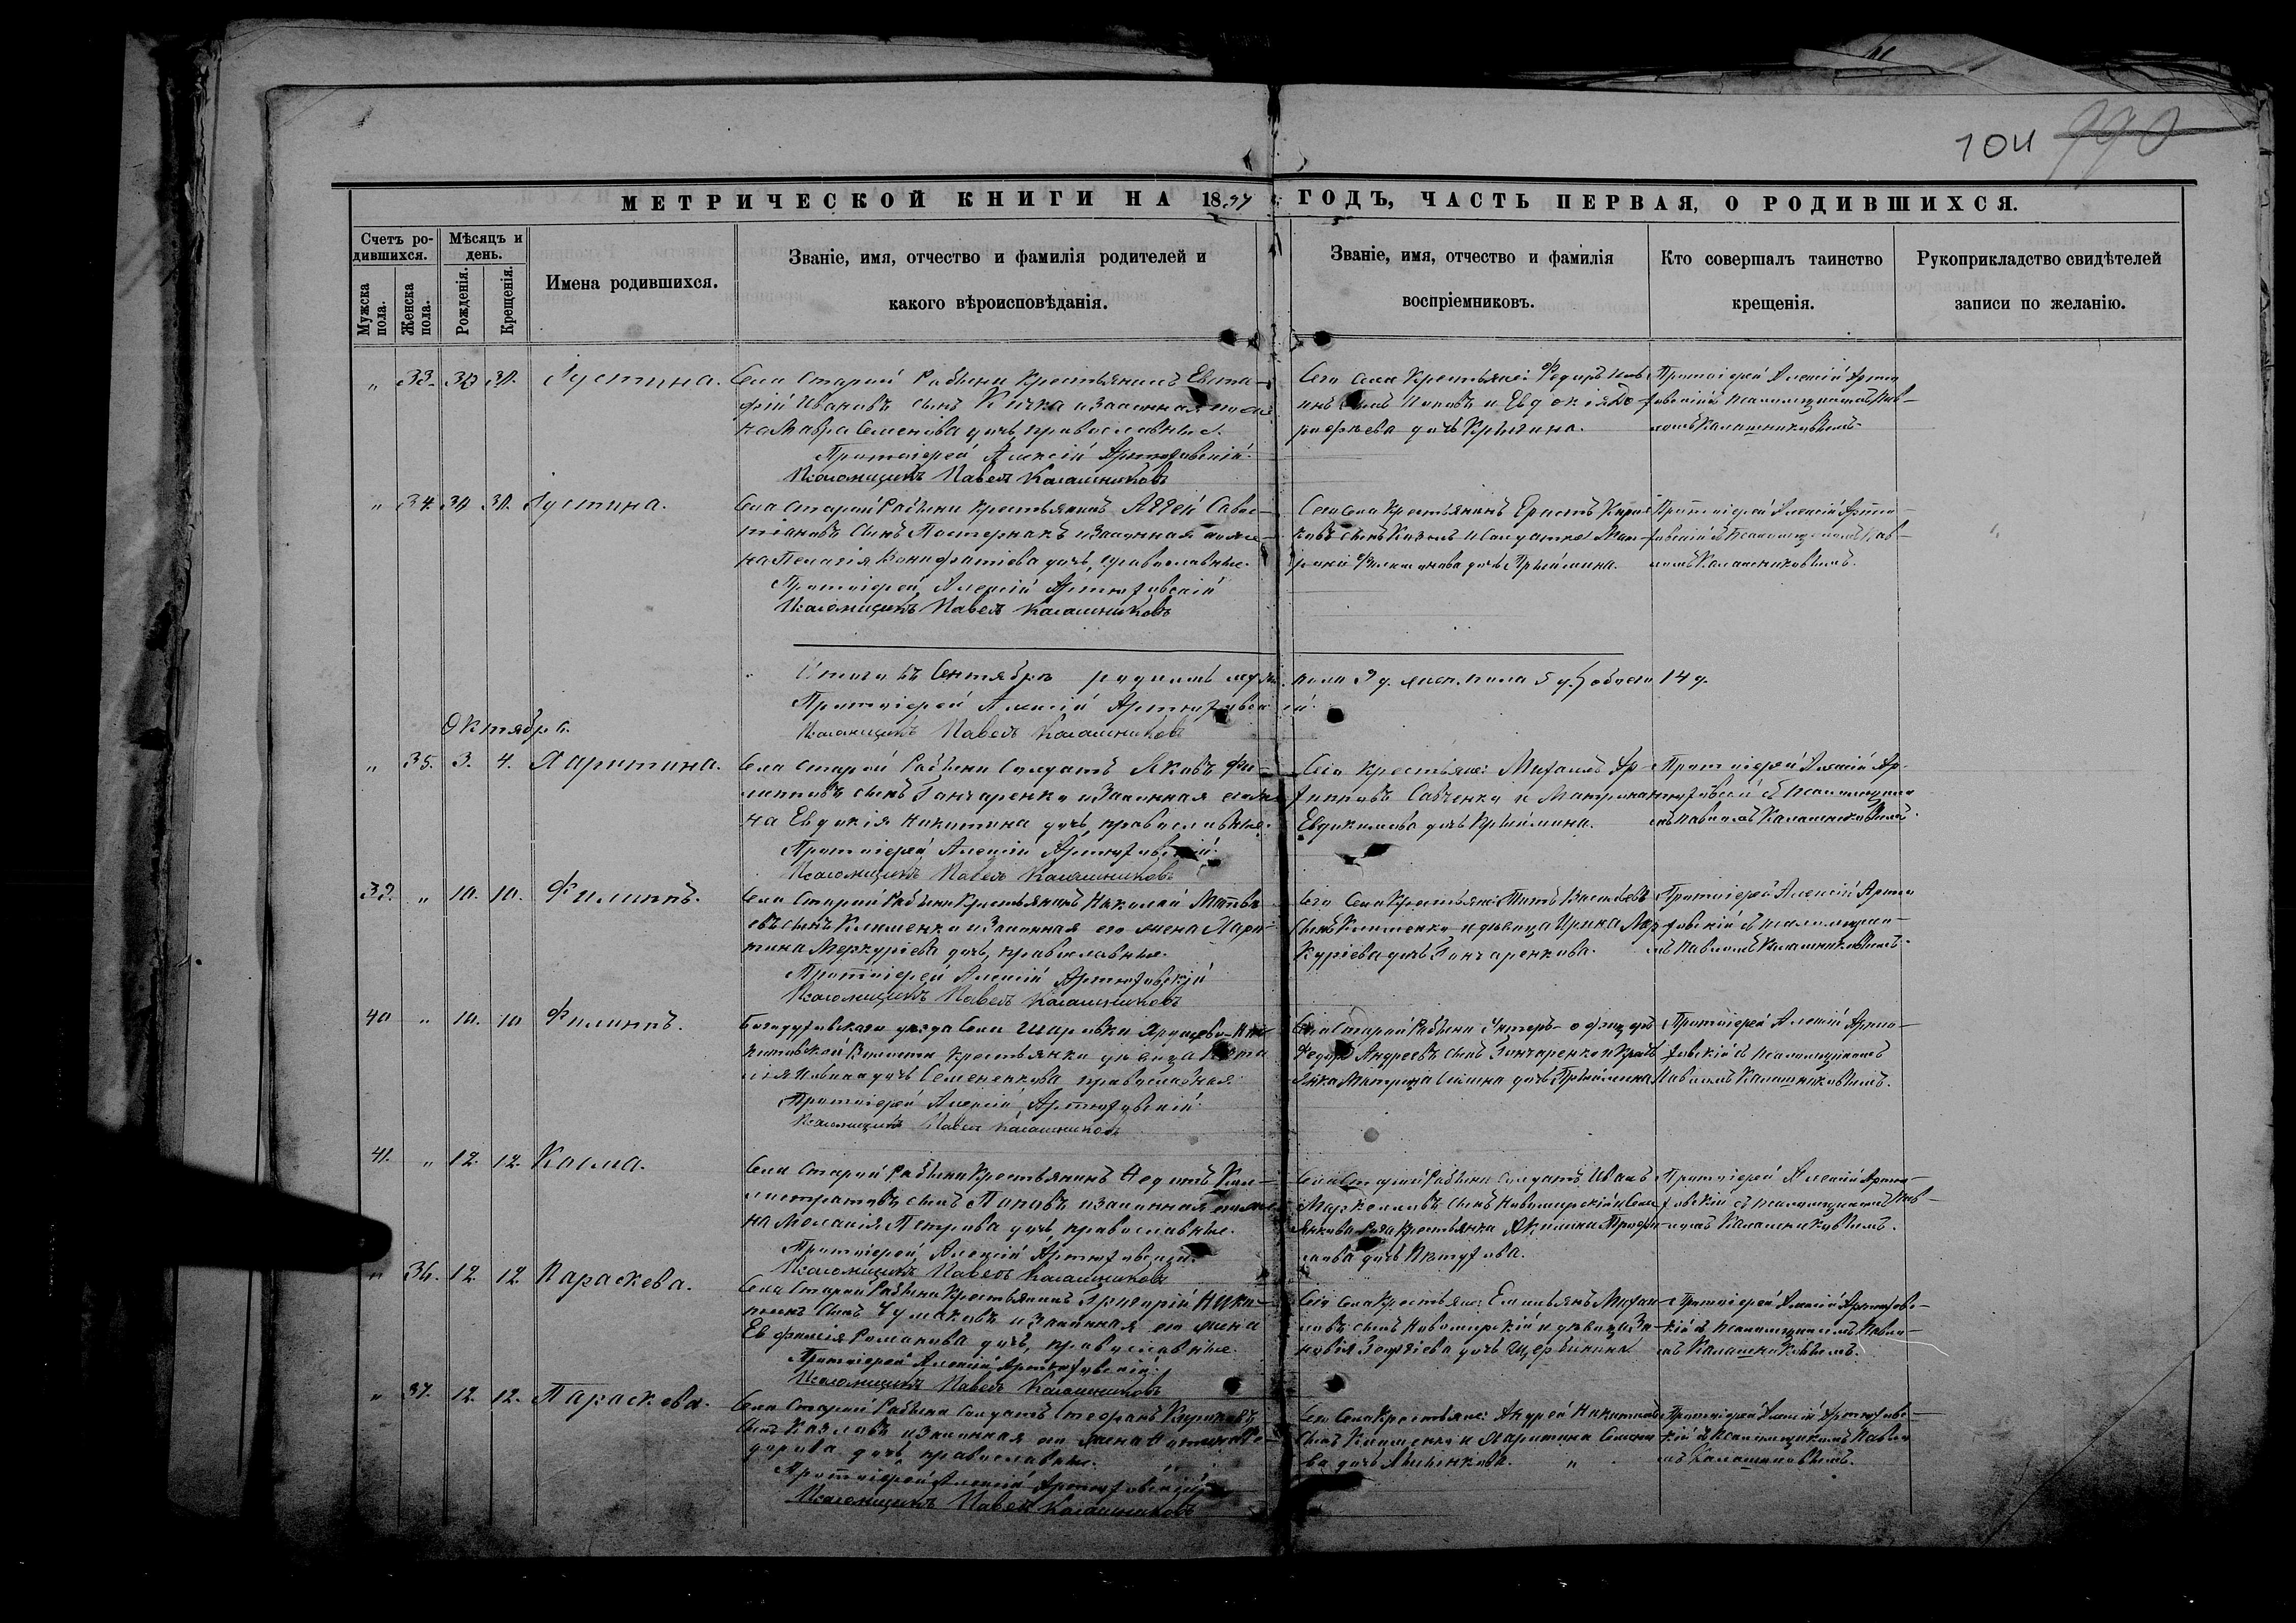 104 990
МЕТРИЧЕСКОЙ КНИГИ НА 1897 ГОДЪ, ЧАСТЬ ПЕРВАЯ, О РОДИВШИХСЯ.
Счетъ родившихся.
Мужска пола.
Женска пола.
Мѣсяцъ и день.
Рожденія.
Крещенія.
Имена родившихся.
Званіе, имя, отчество и фамилія родителей и
какого вѣроисповѣданія.
Званіе, имя, отчество и фамилія
воспріемниковъ.
Кто совершалъ таинство
крещенія.
Рукоприкладство свидѣтелей
записи по желанію.
„ 33. 30 30. Іустина.
Села Старой Рябины крестьянинъ Евста-
фій Ивановъ сынъ Кичка и законная его же-
на Мавра Семенова дочь, православные.
Протоіерей Алексій Артюховскій.
Псаломщикъ Павелъ Калашниковъ
Сего села крестьяне: Федоръ
сынъ Поповъ и Евдокія До-
рофѣева дочь
Протоіерей Алексій Артю-
ховскій съ псаломщикомъ Пав-
ломъ Калашниковымъ.
„ 34. 30 30. Іустина.
Села Старой Рябины крестьянинъ Авдей Савос-
тіановъ сынъ Пастернакъ и законная его же-
на Пелагія Вонифатіева дочь, православные.
Протоіерей Алексій Артюховскій
Псаломщикъ Павелъ Калашниковъ
Сего села крестьянинъ Ерастъ
сынъ и солдатка Мат-
рона дочь
Протоіерей Алексій Артю-
ховскій съ псаломщикомъ Пав-
ломъ Калашниковымъ.
Итого въ Сентябрѣ родилось муж. пола 9 д. жен. пола 5 д. обоего 14 д.
Протоіерей Алексій Артюховскій.
Псаломщикъ Павелъ Калашниковъ
Октябрь.
„ 35. 3. 4. Харитина.
Села Старой Рябины солдатъ Яковъ Фи-
липповъ сынъ Гончаренко и законная его же-
на Евдокія Никитина дочь, православные.
Протоіерей Алексій Артюховскій.
Псаломщикъ Павелъ Калашниковъ
Сего крестьяне: Михаилъ Ар-
хипповъ Савченко и Матрона
Евдокимова дочь
Протоіерей Алексій Ар-
тюховскій съ псаломщико-
мъ Павломъ Калашниковымъ.
39. „ 10. 10. Филиппъ.
Села Старой Рябины крестьянинъ Николай Матве-
евъ сынъ Клименко и законная его жена Хари-
тина Меркуріева дочь, православные.
Протоіерей Алексій Артюховскій
Псаломщикъ Павелъ Калашниковъ
Сего села крестьяне: Титъ Васильевъ
сынъ Клименко и дѣвица Ирина Мер-
куріева дочь Гончаренкова.
Протоіерей Алексій Артю-
ховскій съ псаломщико-
мъ Павломъ Калашниковымъ.
40 „ 10. 10 Филиппъ.
Богодуховскаго уѣзда села Шаровки
волости крестьянка дѣвица
дочь Семененкова православная
Протоіерей Алексій Артюховскій.
Псаломщикъ Павелъ Калашниковъ
Села Старой Рябины Унтеръ-офицеръ
Федоръ Андреевъ сынъ Гончаренко и кресть-
янка Матрона дочь
Протоіерей Алексій Артю-
ховскій съ псаломщикомъ
Павломъ Калашниковымъ.
41. „ 12. 12. Косма.
Села Старой Рябины крестьянинъ Федотъ Кал-
листратовъ сынъ Поповъ и законная его же-
на Меланія Петрова дочь, православные.
Протоіерей Алексій Артюховскій.
Псаломщикъ Павелъ Калашниковъ
Села Старой Рябины солдатъ Иванъ
сынъ Новомирскій и села
крестьянка Акилина Трофи-
дочь
Протоіерей Алексій Артю-
ховскій съ псаломщикомъ Пав-
ломъ Калашниковымъ.
„ 36. 12. 12. Параскева.
Села Старой Рябины крестьянинъ Григорій
сынъ Чумаковъ и законная его жена
Евфимія Романова дочь, православные.
Протоіерей Алексій Артюховскій.
Псаломщикъ Павелъ Калашниковъ
Сего села крестьяне: Емельянъ Михаи-
ловъ сынъ Новомирскій и дѣвица Зи-
новія Георгіева дочь Щербинина
Протоіерей Алексій Артюховс-
кій съ псаломщикомъ Павло-
мъ Калашниковымъ.
„ 37. 12. 12. Параскева.
Села Старой Рябины солдатъ Стефанъ
сынъ Козловъ и законная его жена
дочь, православные.
Протоіерей Алексій Артюховскій
Псаломщикъ Павелъ Калашниковъ
Сего села крестьяне: Андрей Никитинъ
сынъ Клименко и Харитина Семено-
ва дочь
Протоіерей Алексій Артюховс-
кій съ псаломщикомъ Павло-
мъ Калашниковымъ.